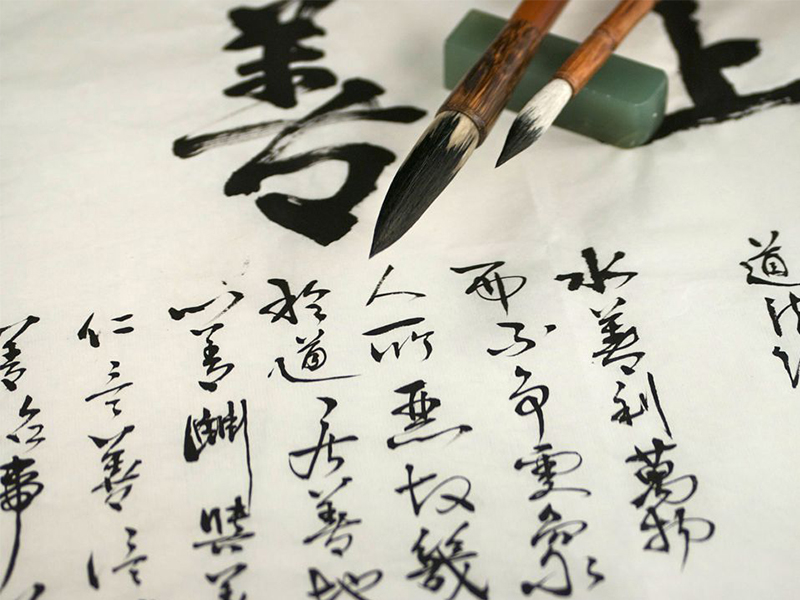 上善
道法
水善利萬物
而不争處衆
人所惡故幾
於道居善地
心善渊與善
仁言善信
善治事善